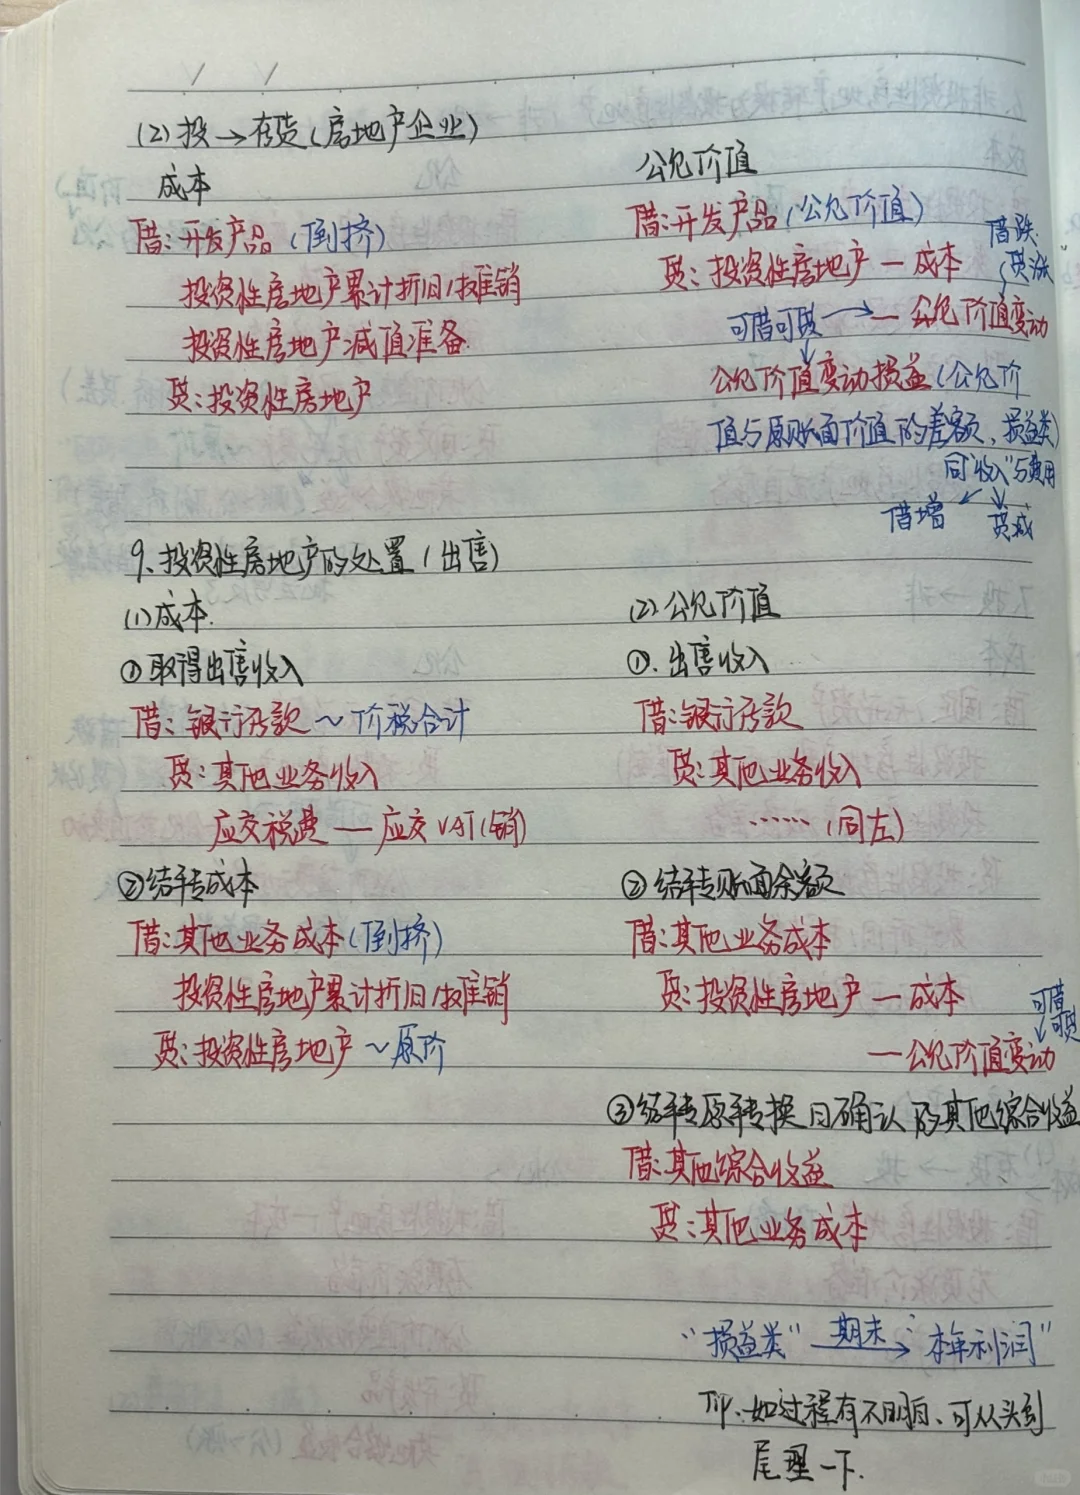 (2)投→存货(房地产企业)
成本
借:开发产品(倒挤)
投资性房地产累计折旧/摊销
投资性房地产减值准备
贷:投资性房地产
公允价值
借:开发产品(公允价值)
借跌
贷涨
贷:投资性房地产—成本
可借可贷→—公允价值变动
公允价值变动损益(公允价
值与原账面价值的差额、损益类)
同"收入"与费用
借增 贷减
9、投资性房地产的处置(出售)
(1)成本.
①取得出售收入
借:银行存款~价税合计
贷:其他业务收入
应交税费—应交VAT(销)
②结转成本
借:其他业务成本(倒挤)
投资性房地产累计折旧/摊销
贷:投资性房地产~原价
(2)公允价值
①.出售收入
借:银行存款
贷:其他业务收入
……(同左)
②结转账面余额
借:其他业务成本
贷:投资性房地产—成本
可借
可贷
—公允价值变动
③结转原转换日确认的其他综合收益
借:其他综合收益
贷:其他业务成本
"损益类" 期末→ "本年利润"
Tip、如过程有不明白、可从头到
尾理一下.